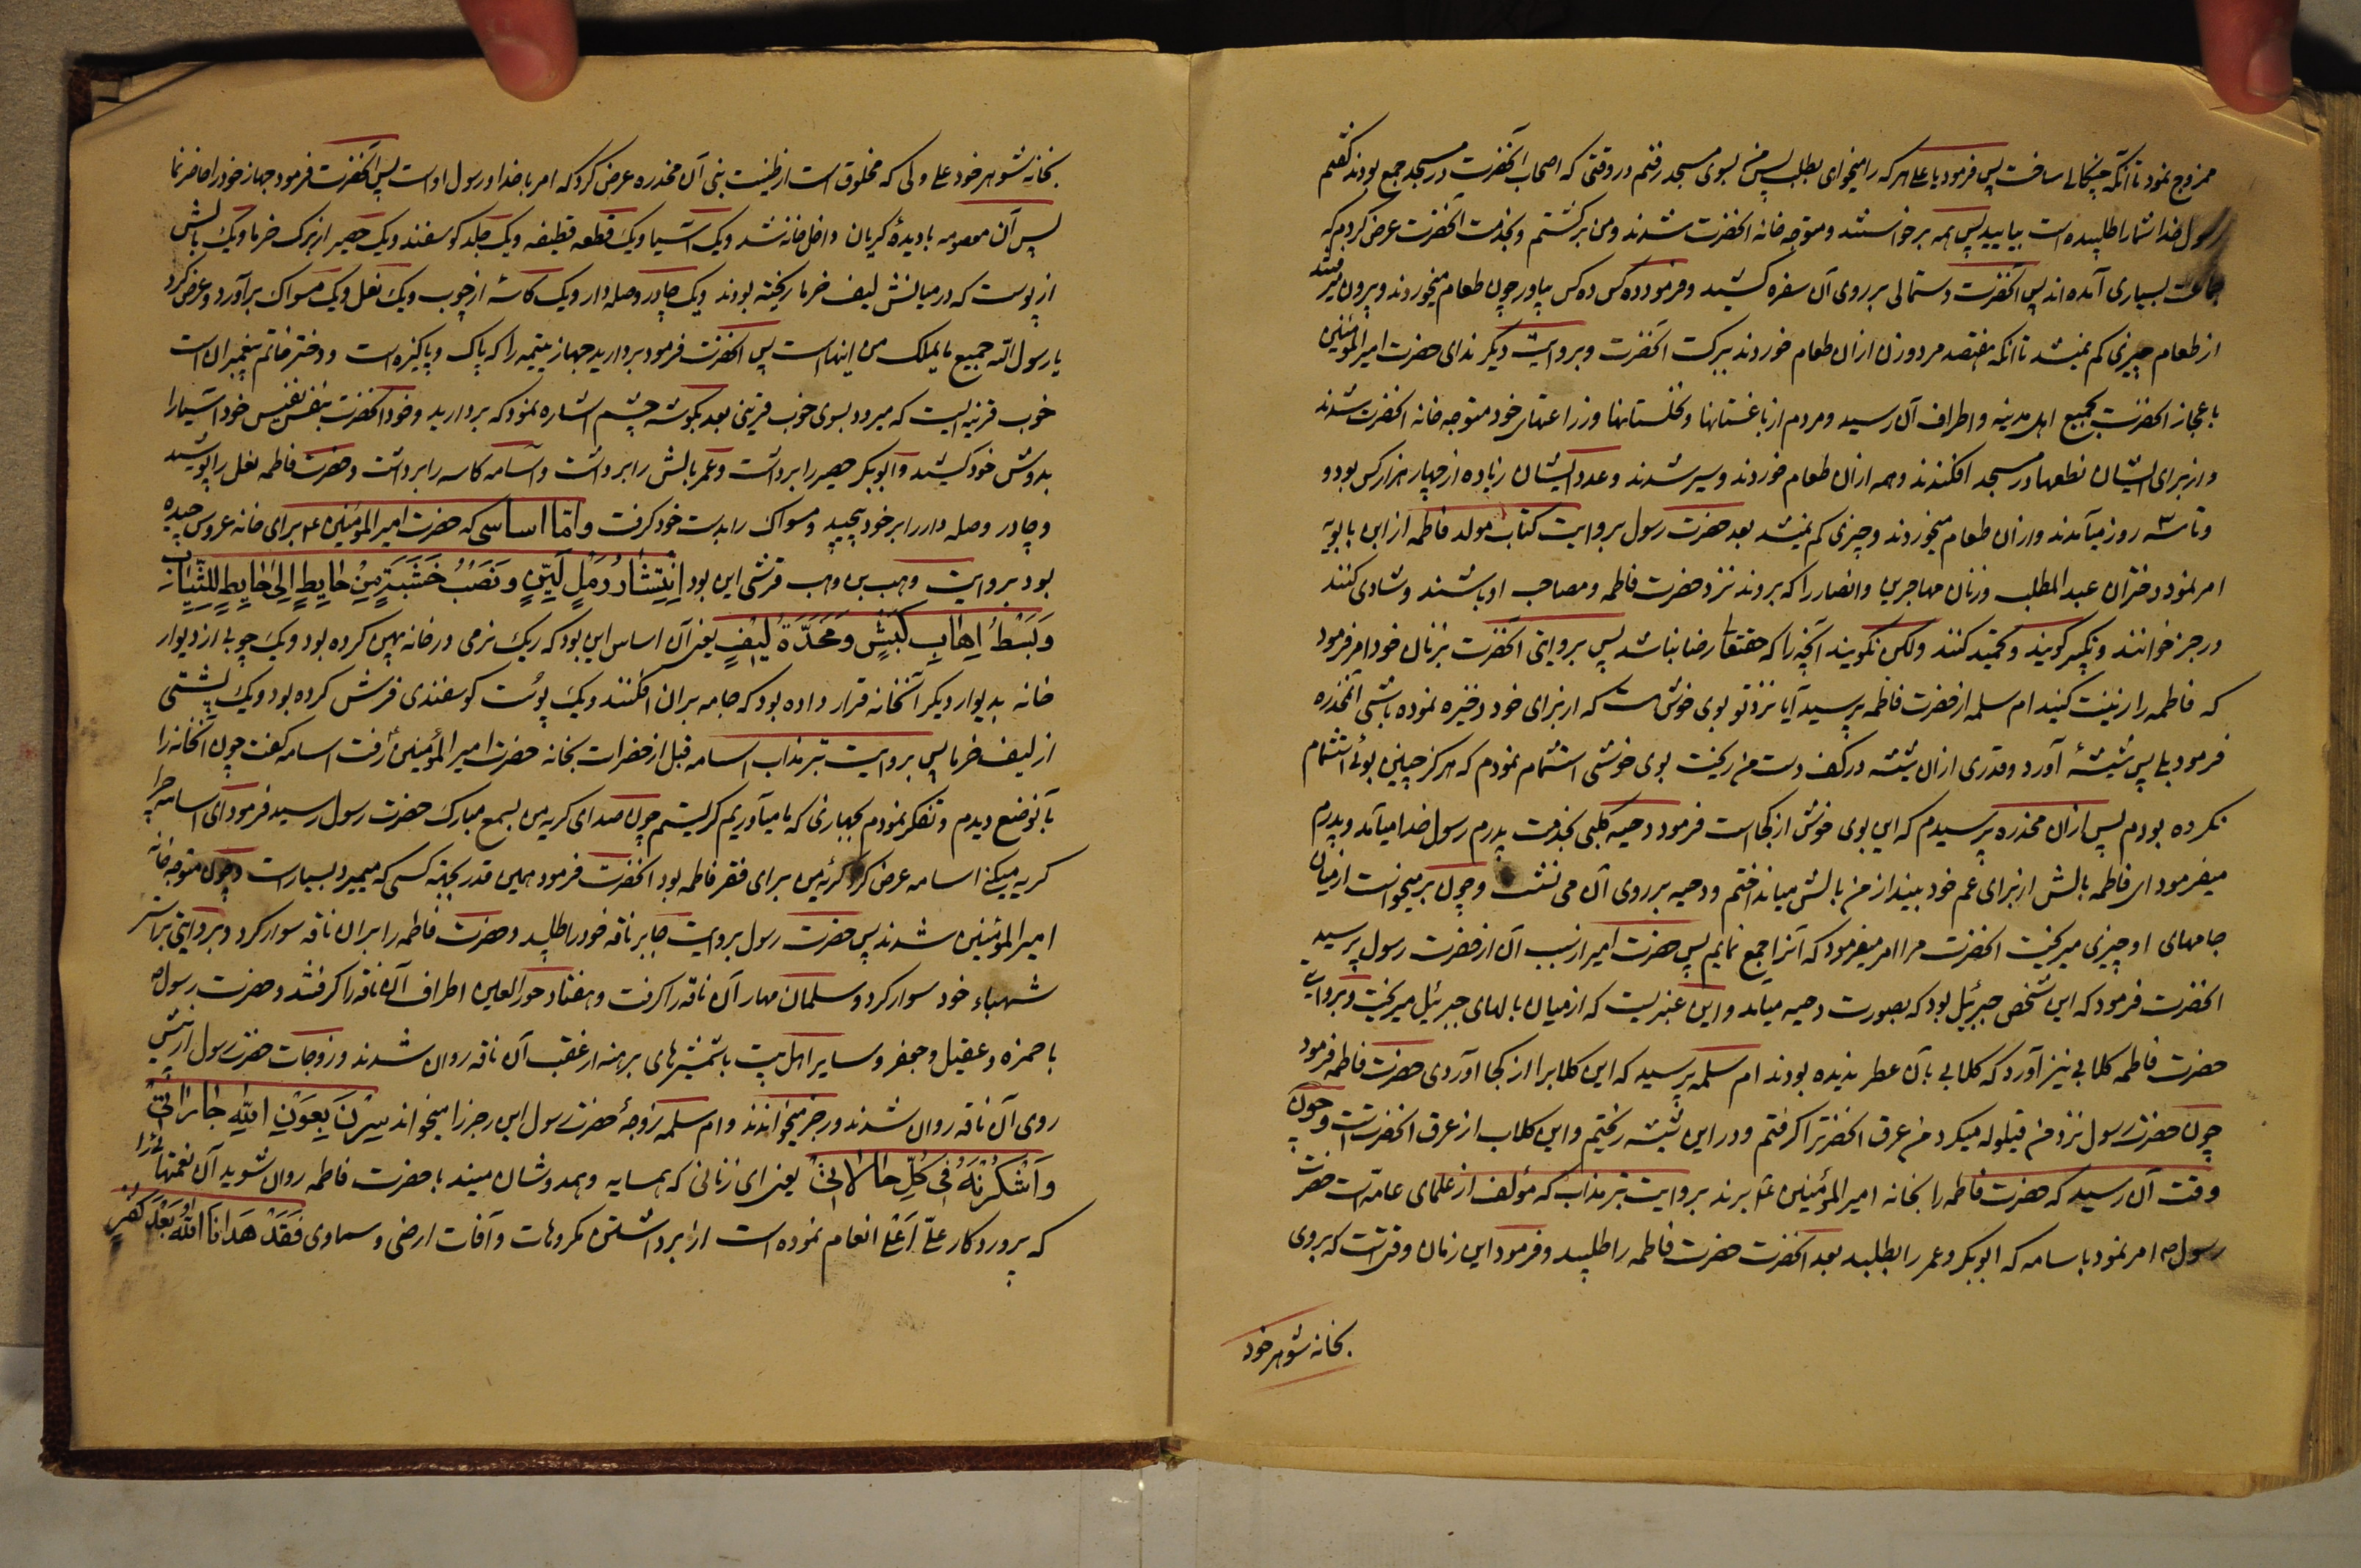 ممزوج نمود تا آنکه چنکالی ساخت پس فرمود یا علی هر که را میخوای بطلب پس من بسوی مسجد رفتم در وقتی که اصحاب آنحضرت در مسجد جمع بودند گفتم
رسول خدا شما را طلبیده است بیایید پس همه برخواستند و متوجه خانه انحضرت شدند و من برکشتم و بخدمت آنحضرت عرض کردم که
جماعت بسیاری آمده اند پس آنحضرت دستمالی بر روی آن سفره کشید و فرمود ده کس ده کس بیاور چون طعام میخوردند و بیرون میرفتند
از طعام چیزی کم نمیشد تا آنکه هفتصد مرد و زن از ان طعام خوردند ببرکت آنحضرت و بروایت دیگر ندای حضرت امیرالمؤمنین
باعجاز انحضرت بجمیع اهل مدینه و اطراف آن رسید و مردم از باغستانها و نخلستانها و زراعتهای خود متوجه خانه انحضرت شدند
و از برای ایشان نطعها در مسجد افکندند و همه از ان طعام خوردند و سیر شدند و عدد ایشان زیاده از چهار هزار کس بود و
و تا سه روز میآمدند و از ان طعام میخوردند و چیزی کم نمیشد بعد حضرت رسول بروایت کتاب مولد فاطمه از ابن بابویه
امر نمود دختران عبد المطلب و زنان مهاجرین و انصار را که بروند نزد حضرت فاطمه و مصاحب او باشند و شادی کنند
و رجز خوانند و تکبیر گویند و تحمید کنند ولکن نگویند آنچه را که حقتعا را رضا نباشد پس بروایتی آنحضرت بزنان خود امر فرمود
که فاطمه را زینت کنید ام سلمه از حضرت فاطمه پرسید آیا نزد تو بوی خوش هست که از برای خود ذخیره نموده باشی آنمخدره
فرمود بلی پس شیشهٔ آورد و قدری از ان شیشه در کف دست من ریخت بوی خوشی استشمام نمودم که هرگز چنین بوئی استشمام
نکرده بودم پس از ان مخدره پرسیدم که این بوی خوش از کجا است فرمود دحیه کلبی بخدمت پدرم رسول خدا میآمد و پدرم
میفرمود ای فاطمه بالش از برای عم خود بینداز من بالش میانداختم و دحیه بر روی آن می نشست و چون برمیخواست از میان
جامهای او چیزی میریخت انحضرت مرا امر میفرمود که آنرا جمع نمایم پس حضرت امیر از سبب آن از حضرت رسول پرسید
انحضرت فرمود که این شخص جبرئیل بود که بصورت دحیه میآمد و این عنبریست که از میان بالهای جبرئیل میریخت و بروایت
حضرت فاطمه کلابی نیز آورد که کلابی بآن عطر ندیده بودند ام سلمه پرسید که این کلاب را از کجا آوردی حضرت فاطمه فرمود
چون حضرت رسول نزد من قیلوله میکرد من عرق انحضرترا گرفتم و در این شیشه ریختم و این کلاب از عرق انحضرت است و چون
وقت آن رسید که حضرت فاطمه را بخانه امیرالمؤمنین ع برند بروایت تبر مذاب که مؤلف از علمای عامه است حضرت
رسول ص امر نمود باسامه که ابوبکر و عمر را بطلبد بعد انحضرت حضرت فاطمه را طلبید و فرمود این زمان وقتی است که بروی
بخانه شوهر خود
بخانه شوهر خود علی ولی که مخلوق است از طینت بنی آن مخدره عرض کرد که امر با خدا و رسول او است پس آنحضرت فرمود جهاز خود را حاضر نما
پس آن معصومه با دیدهٔ گریان داخل خانه شد و یک آسیا و یک قطعه قطیفه و یک جلد گوسفند و یک حصیر از برک خرما و یک بالش
از پوست که در میانش لیف خرما ریخته بودند و یک چادر وصله دار و یک کاسه از چوب و یک نعل و یک مسواک برآورد و عرض کرد
یا رسول الله جمیع ما یملک من اینها است پس انحضرت فرمود بردارید جهاز یتیمه را که پاک و پاکیزه است و دختر خاتم پیغمبران است
خوب قرینه ایست که میرود بسوی خوب قرینی بعد بکوشه چشم اشاره نمود که بردارید و خود انحضرت بنفس نفیس خود آسیا را
بدوش خود کشید و ابوبکر حصیر را برداشت و عمر بالش را برداشت و اسامه کاسه را برداشت و حضرت فاطمه نعل را پوشید
و چادر وصله دار را بر خود پیچید و مسواک را بدست خود گرفت و اما اساسی که حضرت امیرالمؤمنین ع برای خانه عروس چیده
بود بروایت وهب بن وهب قرشی این بود اِنْتِشَارُ رَمْلٍ لَیِّنٍ وَنَصْبُ خَشَبَةٍ مِنْ حَایِطٍ اِلیٰ حَایِطٍ لِلثِّیَابِ
وَبَسْطُ اِهَابِ کَبْشٍ وَمِخَدَّةُ لِیْفٍ یعنی آن اساس این بود که ریک نرمی در خانه پهن کرده بود و یک چوبی از دیوار
خانه بدیوار دیگر آنخانه قرار داده بود که جامه بران افکنند و یک پوست گوسفندی فرش کرده بود و یک پشتی
از لیف خرما پس بروایت تبر مذاب اسامه قبل از حضرات بخانه حضرت امیرالمؤمنین ع رفت اسامه گفت چون آنخانه را
بآنوضع دیدم و تفکر نمودم بجهازی که ما میآوریم گریستم چون صدای گریه من بسمع مبارک حضرت رسول رسید فرمود ای اسامه چرا
گریه میکنی اسامه عرض کرد گریه من برای فقر فاطمه بود انحضرت فرمود همین قدر بجهة کسی که میمیرد بسیار است و چون متوجه خانه
امیرالمؤمنین شدند پس حضرت رسول بروایت جابر ناقه خود را طلبید و حضرت فاطمه را بران ناقه سوار کرد و بروایتی بر استر
شهباء خود سوار کرد و سلمان مهار آن ناقه را گرفت و هفتاد حور العین اطراف آن ناقه را گرفتند و حضرت رسول ص
با حمزه و عقیل و جعفر و سایر اهل بیت با شمشیرهای برهنه از عقب آن ناقه روان شدند و زوجات حضرت رسول از پیش
روی آن ناقه روان شدند و رجز میخواندند و ام سلمه زوجهٔ حضرت رسول این رجز را میخواند سِرْنَ بِعَوْنِ اللهِ جَارَاتِیْ
وَاشْکُرْنَهُ فِیْ کُلِّ حَالاٰتِیْ یعنی ای زنانی که همسایه و همدوشان میند با حضرت فاطمه روان شوید آن نعمتهائی را
که پروردکار علی اعلی انعام نموده است از برداشتن مکروهات و آفات ارضی و سماوی فَقَدْ هَدَانَا اللهُ بَعْدَ کُفْرٍ